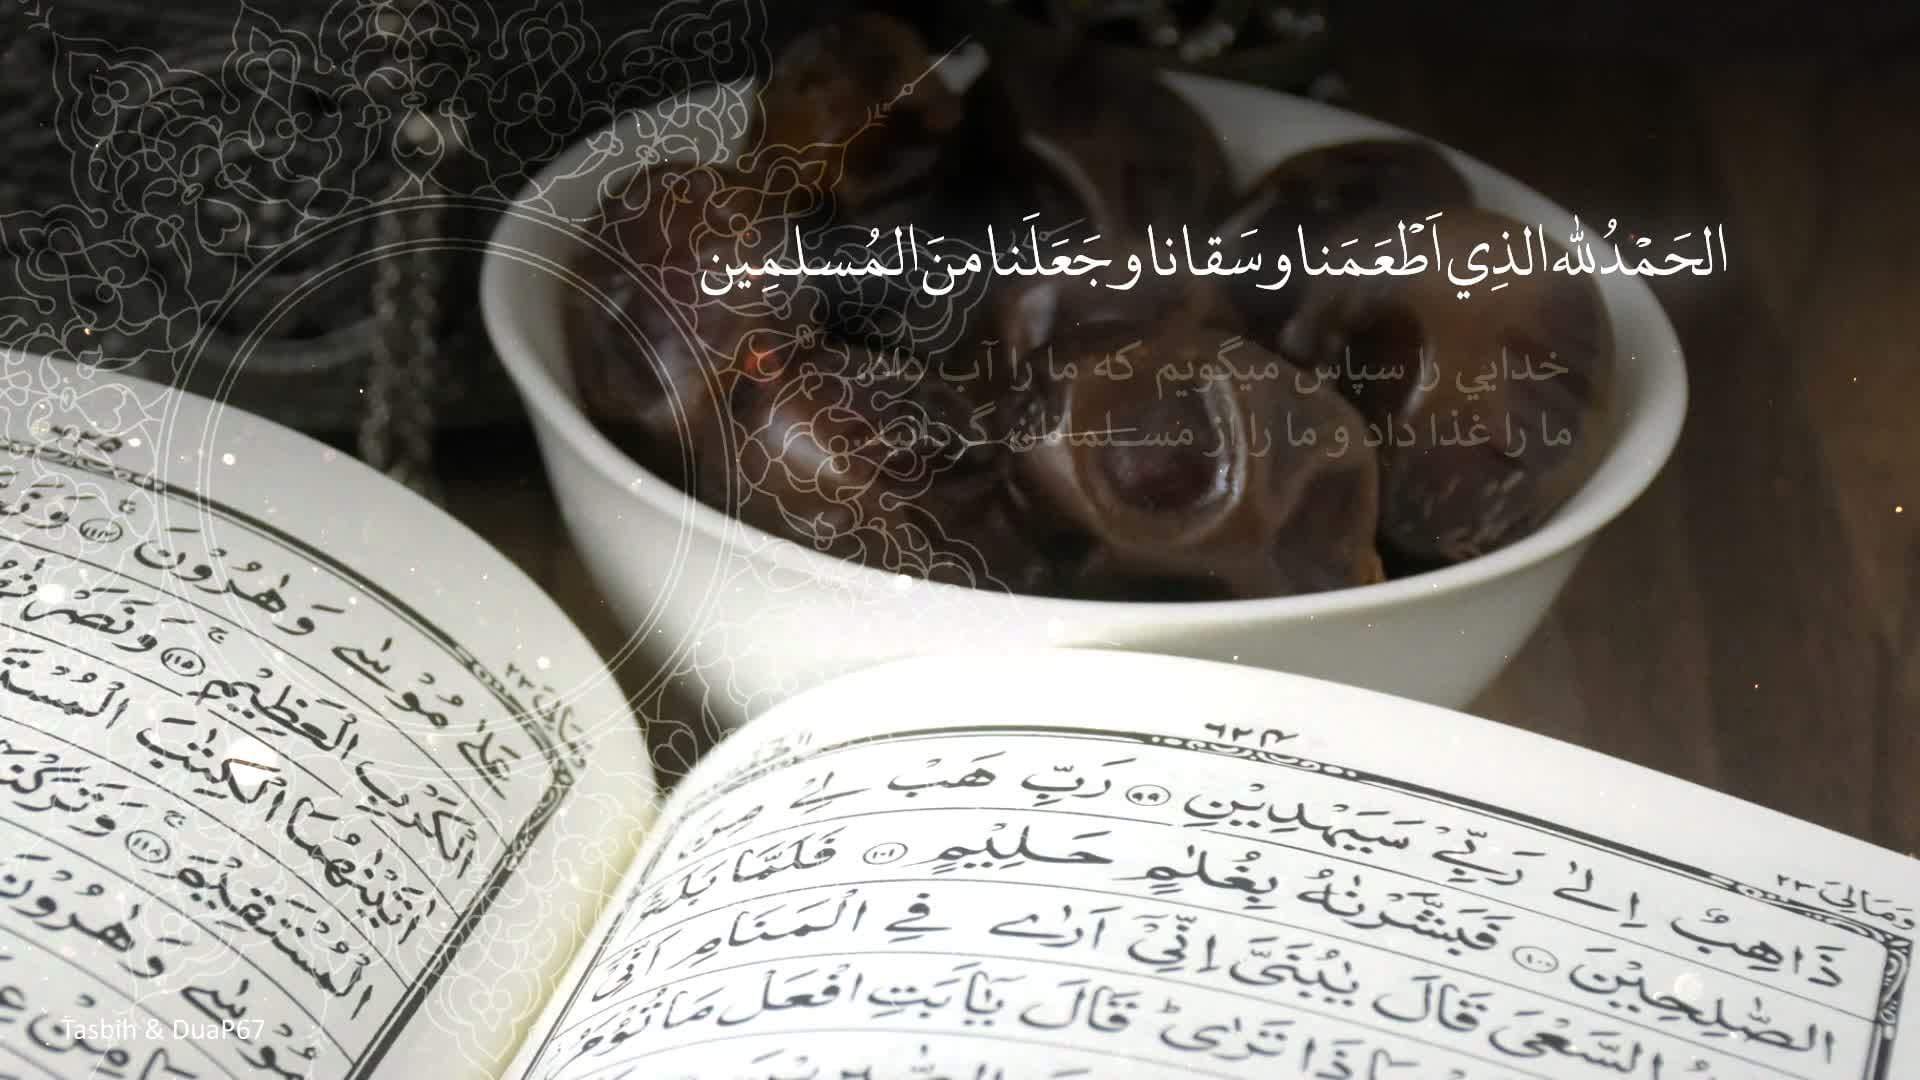 الحَمْدُلله الذِي اَطْعَمَنا و سَقانا و جَعَلَنا منَ المُسلمِين
خدايي را سپاس ميگويم که ما را آب داد،
ما را غذا داد و ما را از مسلمانان گردانيد
وَمَالِىَ ٢٣
ذَاهِبٌ اِلٰى رَبِّىْ سَيَهْدِيْنِ ٩٩ رَبِّ هَبْ لِىْ مِنَ
الصّٰلِحِيْنَ ١٠٠ فَبَشَّرْنٰهُ بِغُلٰمٍ حَلِيْمٍ ١٠١ فَلَمَّا بَلَغَ
السَّعْىَ قَالَ يٰبُنَىَّ اِنِّىْٓ اَرٰى فِى الْمَنَامِ اَنِّىْ
مَاذَا تَرٰى قَالَ يٰٓاَبَتِ افْعَلْ مَا تُؤْمَرُ
عَلٰى مُوْسٰى وَهٰرُوْنَ ١١٤
الْكَرْبِ الْعَظِيْمِ ١١٥ وَنَصَرْنٰهُمْ
اٰتَيْنٰهُمَا الْكِتٰبَ
الْمُسْتَقِيْمَ ١١٨ وَتَرَكْنَا
مُوْسٰى وَهٰرُوْنَ
Tasbih & DuaP67